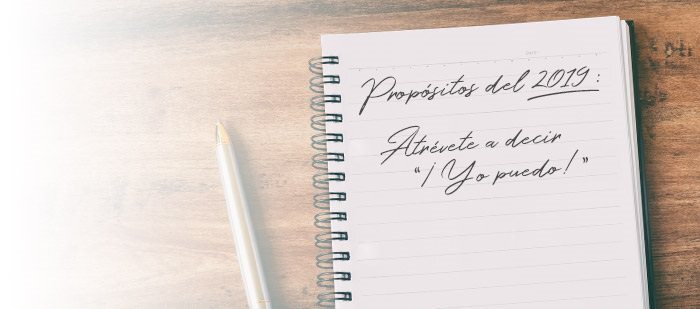 Date:
Propósitos del 2019:
Atrévete a decir
“¡Yo puedo!”